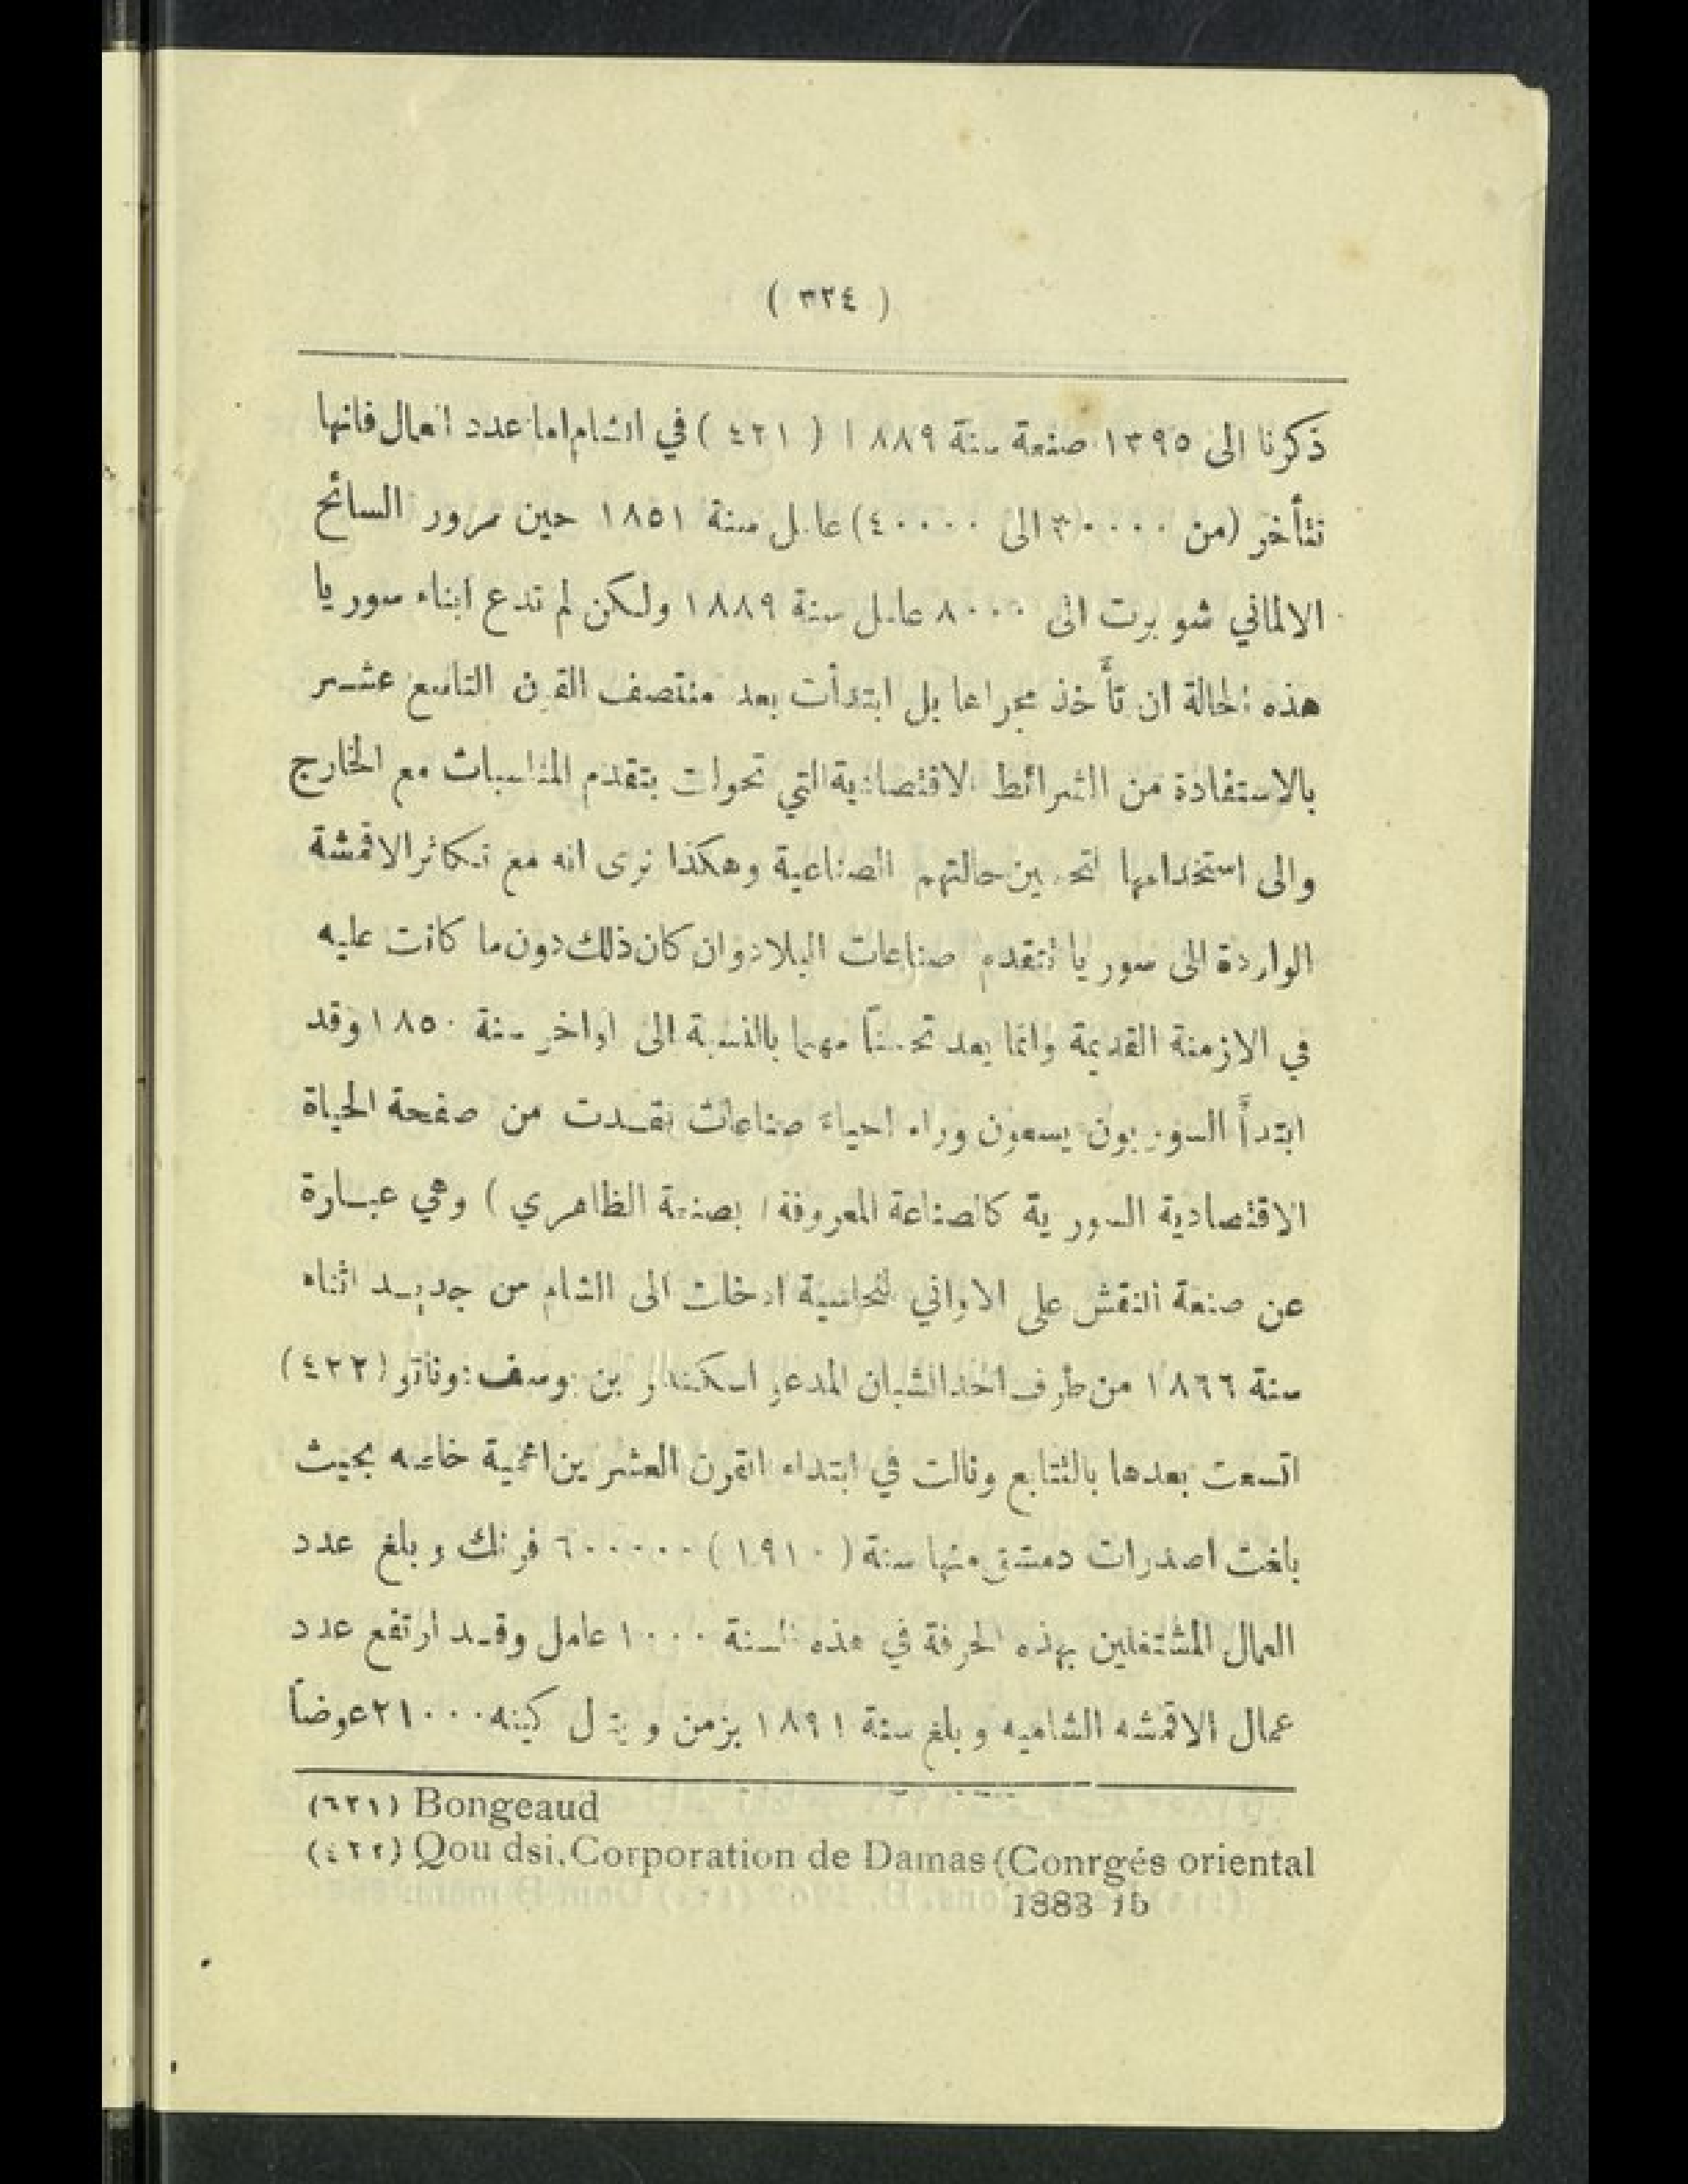 ( ٣٢٤ )
ذكرنا الى ١٣٩٥ صنعة سنة ١٨٨٩ ( ٤٢١ ) في الشام اما عدد العمال فانها
تتأخر (من ٣٠٠٠٠ الى ٤٠٠٠٠) عامل سنة ١٨٥١ حين مرور السائح
الالماني شوبرت الى ٨٠٠٠ عامل سنة ١٨٨٩ ولكن لم تدع ابناء سوريا
هذه الحالة ان تأخذ مجراها بل ابتدأت بعد منتصف القرن التاسع عشر
بالاستفادة من الشرائط الاقتصادية التي تحولت بتقدم المناسبات مع الخارج
والى استخدامها لتحسين حالتهم الصناعية وهكذا نرى انه مع تكاثر الاقمشة
الواردة الى سوريا تتقدم صناعات البلاد وان كان ذلك دون ما كانت عليه
في الازمنة القديمة وانما يعد تحسنًا مهما بالنسبة الى اواخر سنة ١٨٥٠ وقد
ابتدأ السوريون يسعون وراء احياء صناعات نقدت من صفحة الحياة
الاقتصادية السورية كالصناعة المعروفة ( بصنعة الظاهري ) وهي عبارة
عن صنعة النقش على الاواني النحاسية ادخلت الى الشام من جديد اثناء
سنة ١٨٦٦ من طرف احد الشبان المدعو اسكندر بن يوسف دوناتو (٤٢٢)
اتسعت بعدها بالتتابع ونالت في ابتداء القرن العشرين اهمية خاصه بحيث
بلغت اصدرات دمشق منها سنة ( ١٩١٠ ) ٦٠٠٠٠٠ فرنك وبلغ عدد
العمال المشتغلين بهذه الحرفة في هذه السنة ١٠٠٠ عامل وقد ارتفع عدد
عمال الاقمشه الشاميه وبلغ سنة ١٨٩١ بزمن و كينه ٢١٠٠٠ عوضاً
(٦٢١) Bongeaud
(٤٢٢) Qou dsi. Corporation de Damas (Conrgés oriental
1883